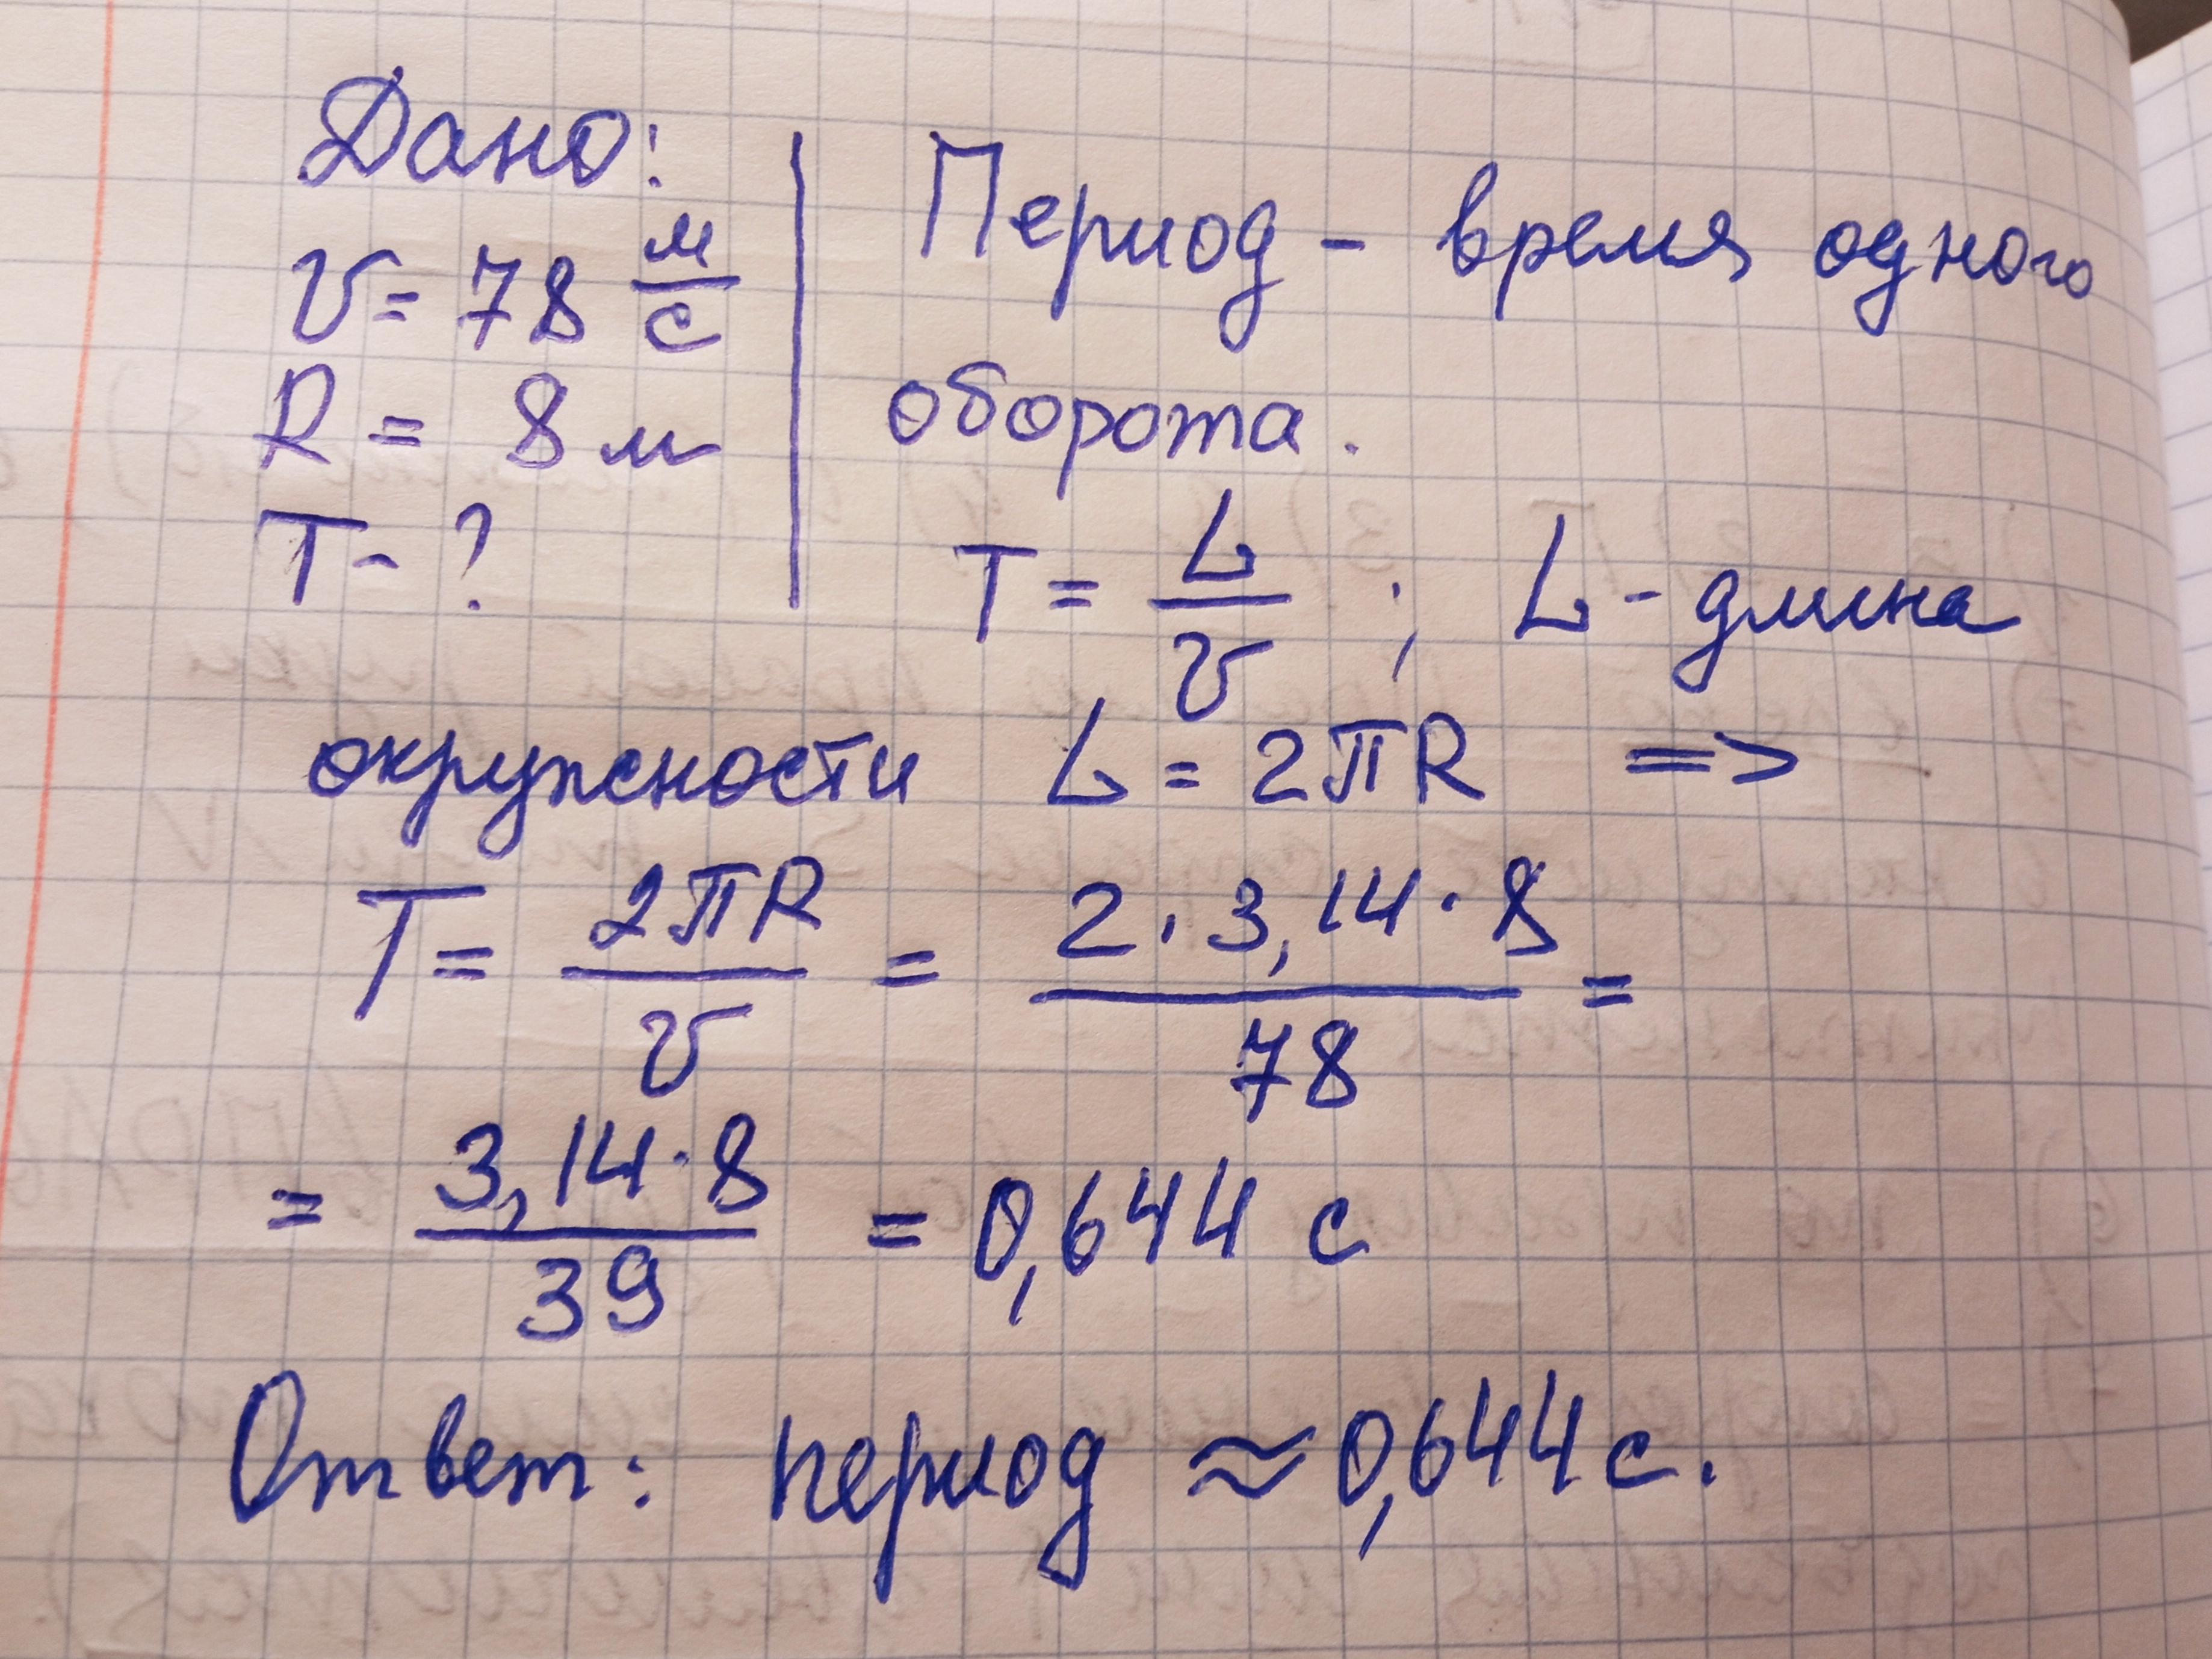 Дано:
υ = 78 м/с
R = 8 м
T - ?
Период - время одного
оборота.
T = L/υ ; L - длина
окружности L = 2πR =>
T = 2πR/υ = 2·3,14·8/78 =
= 3,14·8/39 = 0,644 с
Ответ: период ≈ 0,644 с.